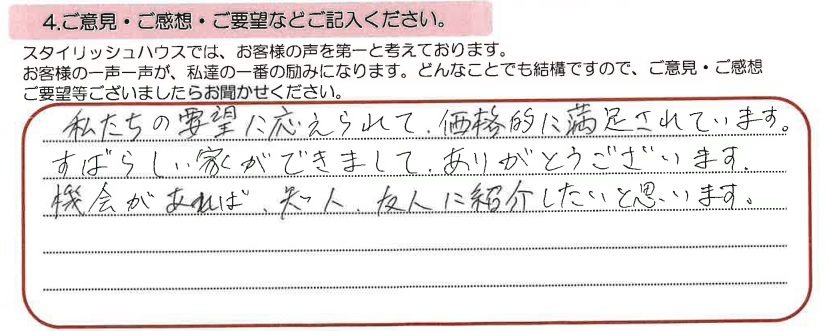 4.ご意見・ご感想・ご要望などご記入ください。
スタイリッシュハウスでは、お客様の声を第一と考えております。
お客様の一声一声が、私達の一番の励みになります。どんなことでも結構ですので、ご意見・ご感想
ご要望等ございましたらお聞かせください。
私たちの要望に応えられて、価格的に満足されています。
すばらしい家ができまして、ありがとうございます。
機会があれば、知人、友人に紹介したいと思います。